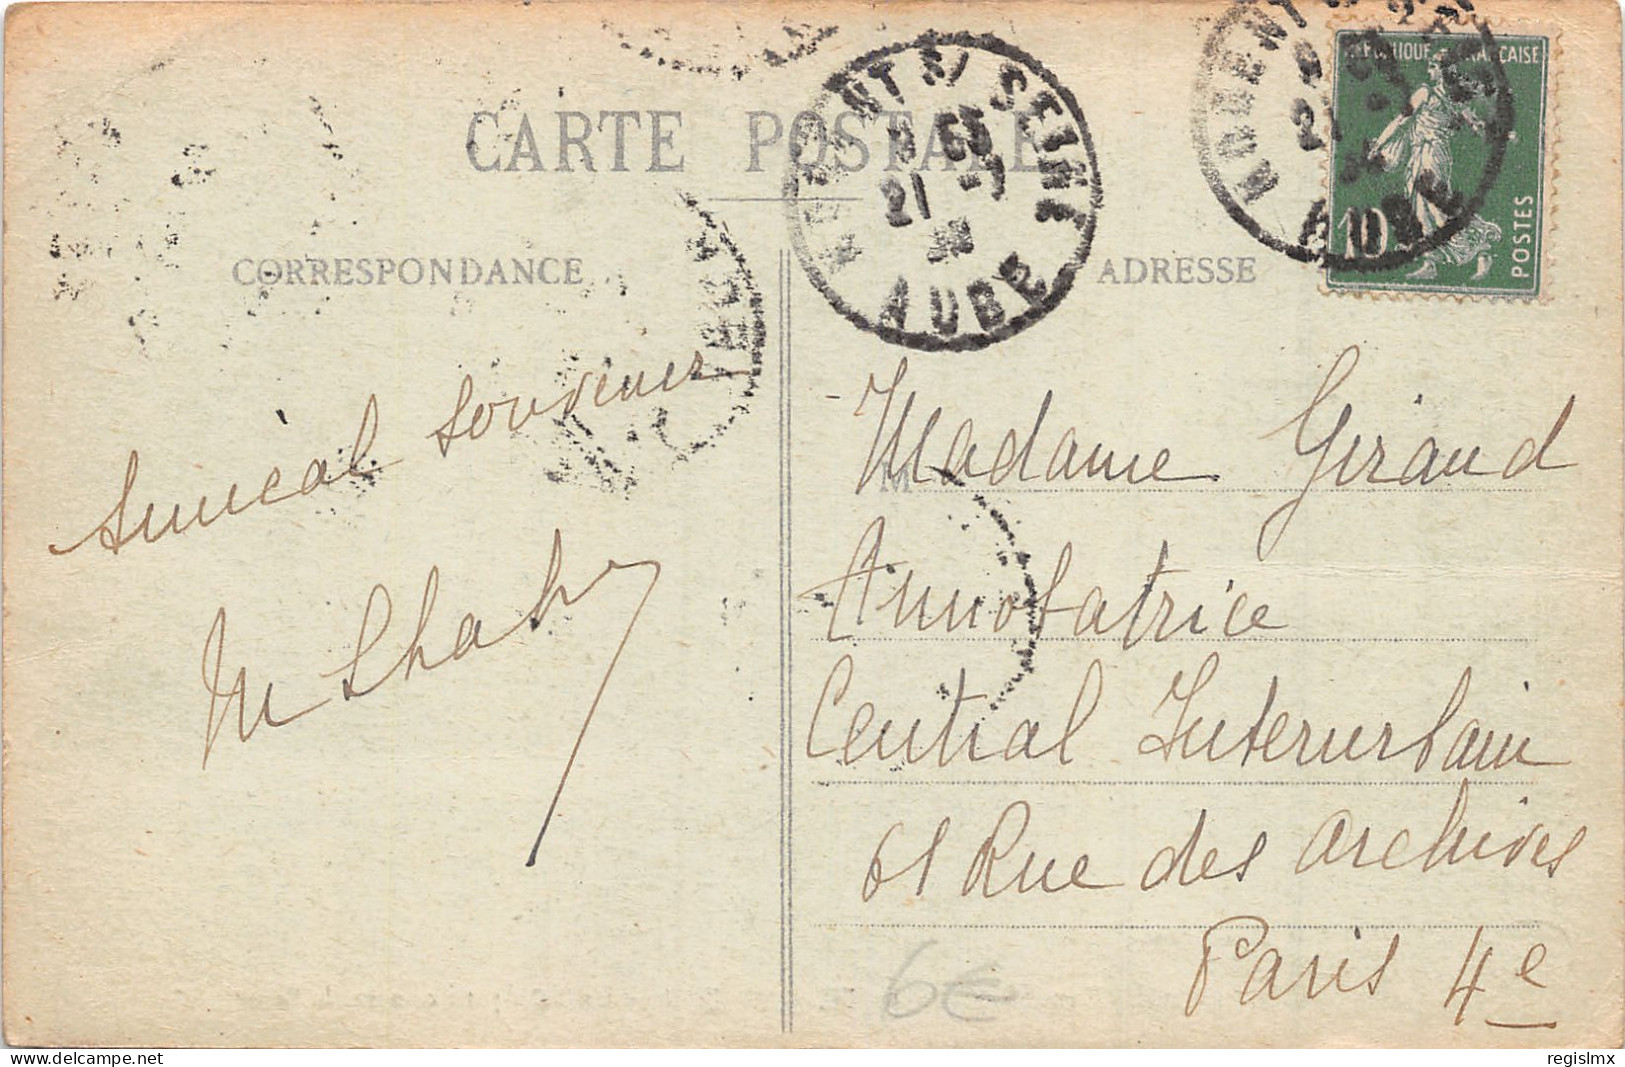 CARTE POSTALE
CORRESPONDANCE
ADRESSE
NOGENT S/ SEINE
21 -7
AUBE
NOGENT
21
AUBE
REPUBLIQUE FRANCAISE
10
POSTES
Amical souvenir
M
Madame Giraud
Annotatrice
Central Interurbain
61 Rue des archives
Paris 4e
6€
delcampe.net
regislmx